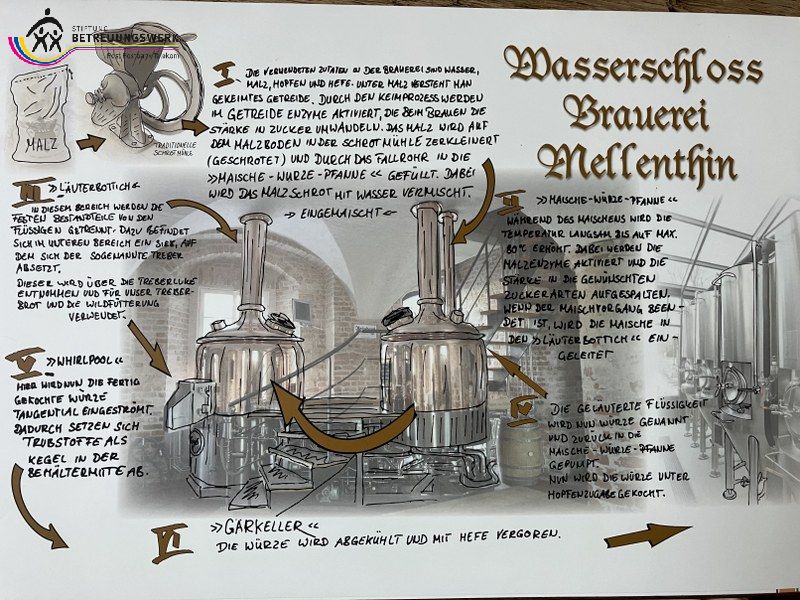 STIFTUNG
BETREUUNGSWERK
Post Postbank Telekom
Wasserschloss
Brauerei
Mellenthin
MALZ
TRADITIONELLE
SCHROTMÜHLE
I DIE VERWENDETEN ZUTATEN IN DER BRAUEREI SIND WASSER,
MALZ, HOPFEN UND HEFE. UNTER MALZ VERSTEHT MAN
GEKEIMTES GETREIDE. DURCH DEN KEIMPROZESS WERDEN
IM GETREIDE ENZYME AKTIVIERT, DIE BEIM BRAUEN DIE
STÄRKE IN ZUCKER UMWANDELN. DAS MALZ WIRD AUF
DEM MALZBODEN IN DER SCHROTMÜHLE ZERKLEINERT
(GESCHROTET) UND DURCH DAS FALLROHR IN DIE
»MAISCHE-WÜRZE-PFANNE« GEFÜLLT. DABEI
WIRD DAS MALZSCHROT MIT WASSER VERMISCHT.
→ EINGEMAISCHT ←
II »MAISCHE-WÜRZE-PFANNE«
WÄHREND DES MAISCHENS WIRD DIE
TEMPERATUR LANGSAM BIS AUF MAX.
80°C ERHÖHT. DABEI WERDEN DIE
MALZENZYME AKTIVIERT UND DIE
STÄRKE IN DIE GEWÜNSCHTEN
ZUCKERARTEN AUFGESPALTEN.
WENN DER MAISCHVORGANG BEEN-
DET IST, WIRD DIE MAISCHE IN
DEN »LÄUTERBOTTICH« EIN-
GELEITET
III »LÄUTERBOTTICH«
IN DIESEM BEREICH WERDEN DIE
FESTEN BESTANDTEILE VON DEN
FLÜSSIGEN GETRENNT. DAZU BEFINDET
SICH IM UNTEREN BEREICH EIN SIEB, AUF
DEM SICH DER SOGENANNTE TREBER
ABSETZT.
DIESER WIRD ÜBER DIE TREBERLUKE
ENTNOMMEN UND FÜR UNSER TREBER-
BROT UND DIE WILDFÜTTERUNG
VERWENDET.
IV DIE GELÄUTERTE FLÜSSIGKEIT
WIRD NUN WÜRZE GENANNT
UND ZURÜCK IN DIE
MAISCHE-WÜRZE-PFANNE
GEPUMPT.
NUN WIRD DIE WÜRZE UNTER
HOPFENZUGABE GEKOCHT.
V »WHIRLPOOL«
HIER WIRD NUN DIE FERTIG
GEKOCHTE WÜRZE
TANGENTIAL EINGESTRÖMT.
DADURCH SETZEN SICH
TRUBSTOFFE ALS
KEGEL IN DER
BEHÄLTERMITTE AB.
VI »GÄRKELLER«
DIE WÜRZE WIRD ABGEKÜHLT UND MIT HEFE VERGOREN.